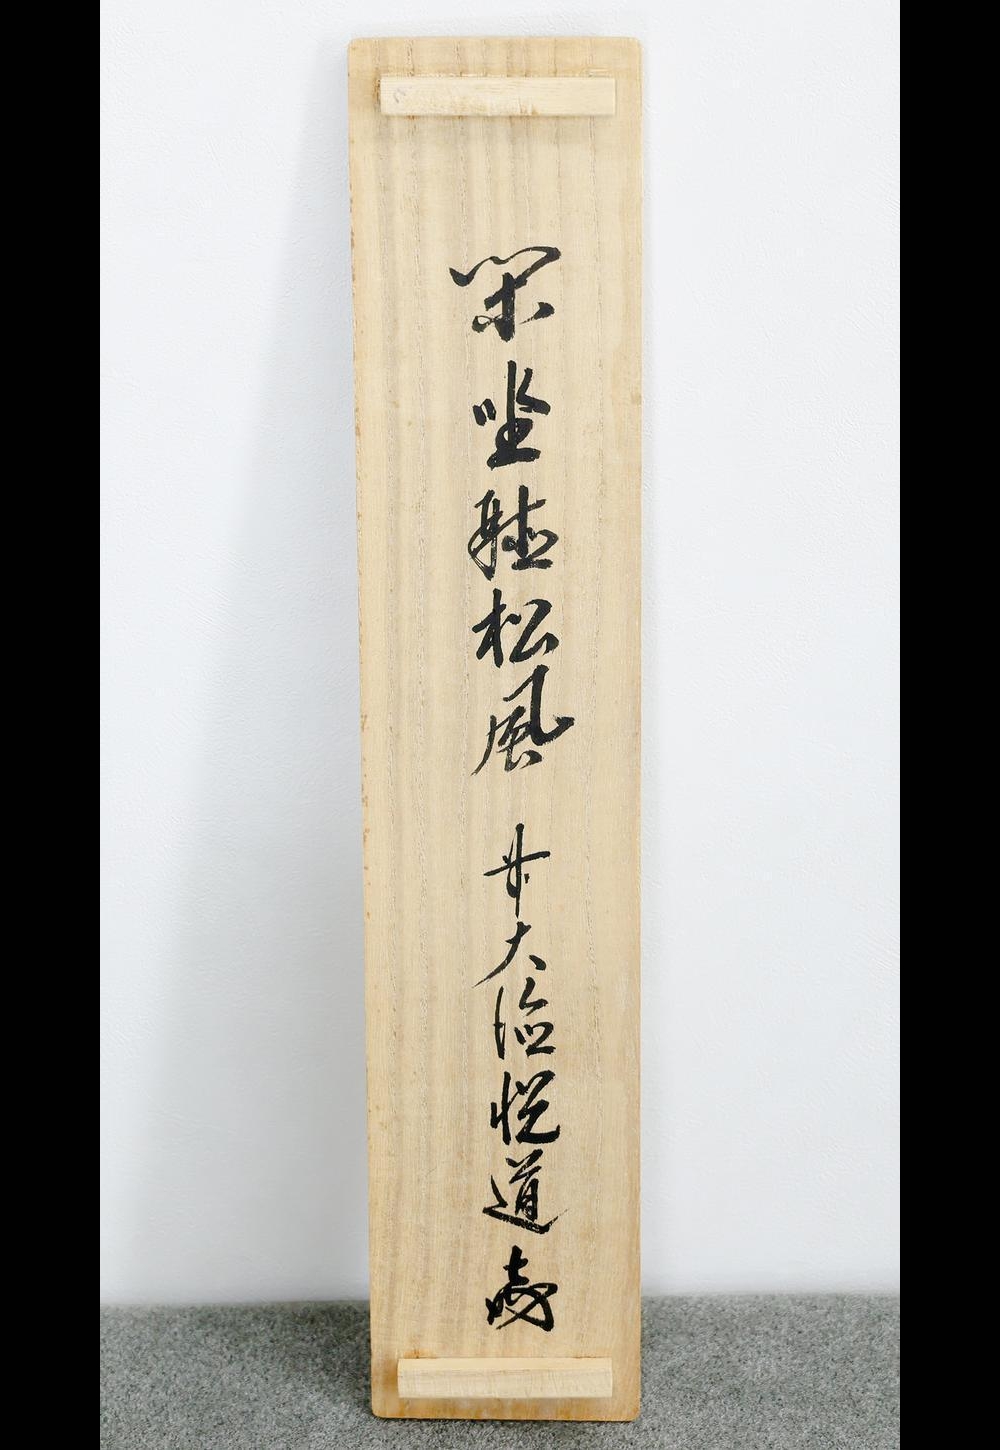 閑坐聴松風 廿大徳悦道